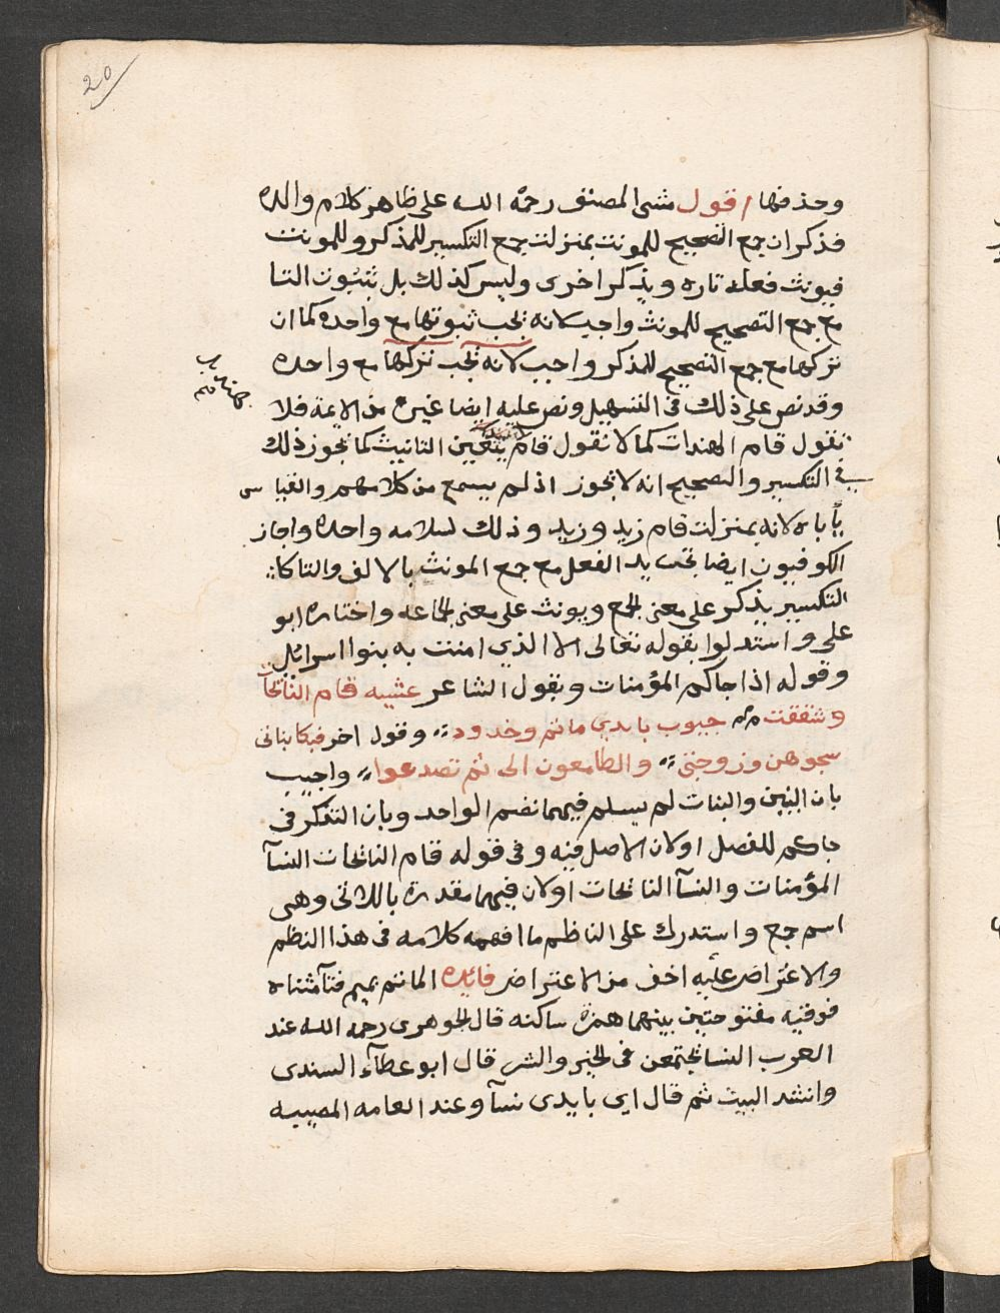 20
وحذفها اقول مشى المصنف رحمه الله على ظاهر كلام والده
فذكر ان جمع التصحيح للمونث بمنزلت جمع التكسير للمذكر وللمونث
فيونث فعله تاره ويذكر اخرى وليس كذلك بل ثبوت التا
مع جمع التصحيح للمونث واجب لانه يجب ثبوتها مع واحده كما ان
تركها مع جمع التصحيح للمذكر واجب لانه يجب تركها مع واحده
وقد نص على ذلك فى التسهيل ونص عليه ايضا غيره من الايمة فلا
تقول قام الهندات كما لا تقول قام يتعين التانيث كما يجوز ذلك
في التكسير والصحيح انه لا يجوز اذ لم يسمع من كلامهم والقياس
ياباه لانه بمنزلت قام زيد وزيد وذلك لسلامه واحده واجاز
الكوفيون ايضا تجريد الفعل مع جمع المونث بالالف والتا كان
التكسير يذكر على معنى الجمع ويونث على معنى الجماعه واختاره ابو
على واستدلوا بقوله تعالى الا الذي امنت به بنوا اسرائل
وقوله اذا جاكم المؤمنات وبقول الشاعر عشيه قام النائحات
وشققت جيوب بايدي ماتم وخدود وقول اخر فبكا بناتى
شجوهن وزوجتي والطامعون الى ثم تصدعوا واجيب
بان البنين والبنات لم يسلم فيهما نضم الواحد وبان التذكر فى
جاكم للفصل او لان الاصل فيه وفى قوله قام النائحات النسآ
المؤمنات والنسآ النائحات او لان فيهما مقدره باللاتى وهى
اسم جمع واستدرك على الناظم ما افهمه كلامه فى هذا النظم
والاعتراض عليه اخف من الاعتراض فائده الماتم بميم فتآ مثناه
فوقيه مفتوحتين بينهما همزة ساكنه قال الجوهرى رحمه الله عند
العرب النسا يجتمعن فى الخير والشر قال ابو عطآء السندى
وانشد البيت ثم قال اي بايدى نسآ وعند العامه المصيبه